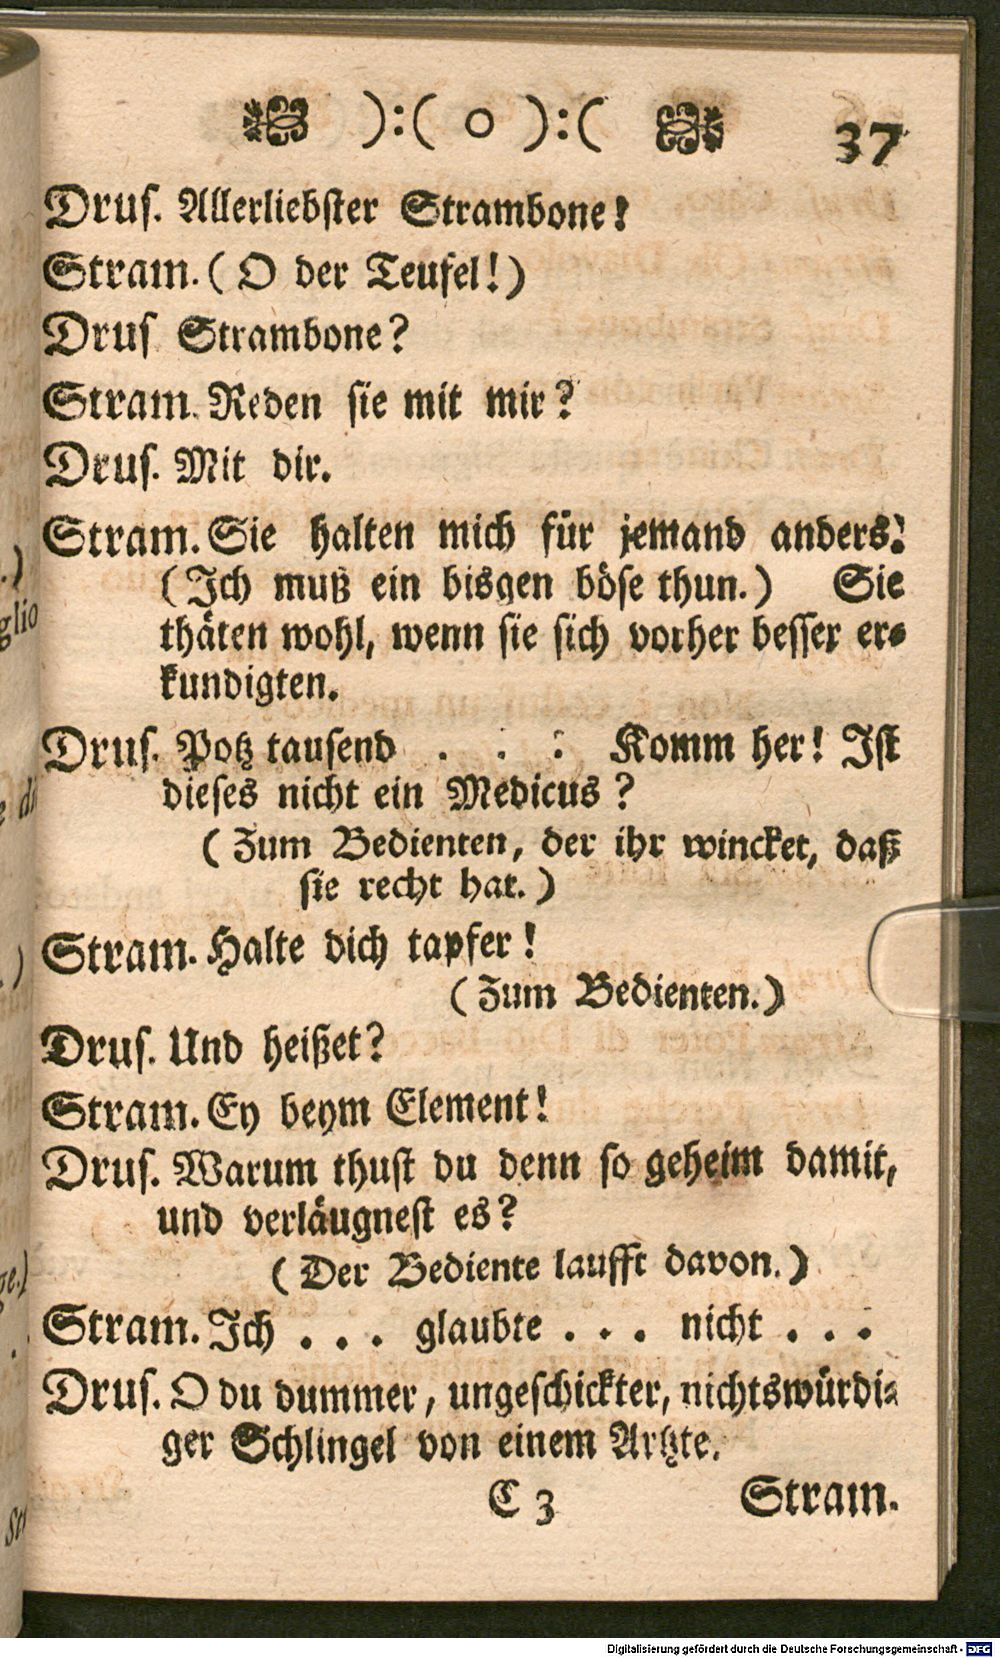 ):( o ):( 37
Drus. Allerliebster Strambone!
Stram. (O der Teufel!)
Drus Strambone?
Stram. Reden sie mit mir?
Drus. Mit dir.
Stram. Sie halten mich für jemand anders!
(Ich muß ein bisgen böse thun.) Sie
thäten wohl, wenn sie sich vorher besser er-
kundigten.
Drus. Potz tausend . . : Komm her! Ist
dieses nicht ein Medicus?
(Zum Bedienten, der ihr wincket, daß
sie recht hat.)
Stram. Halte dich tapfer!
(Zum Bedienten.)
Drus. Und heißet?
Stram. Ey beym Element!
Drus. Warum thust du denn so geheim damit,
und verläugnest es?
(Der Bediente laufft davon.)
Stram. Ich . . . glaubte . . . nicht . . .
Drus. O du dummer, ungeschickter, nichtswürdi-
ger Schlingel von einem Artzte.
C 3 Stram.
Digitalisierung gefördert durch die Deutsche Forschungsgemeinschaft - DFG